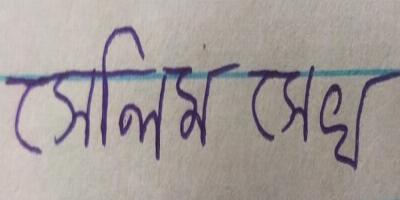 সেলিম সেখ